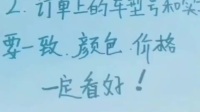 2.订单上的车型号和实
要一致、颜色、价格
一定看好！